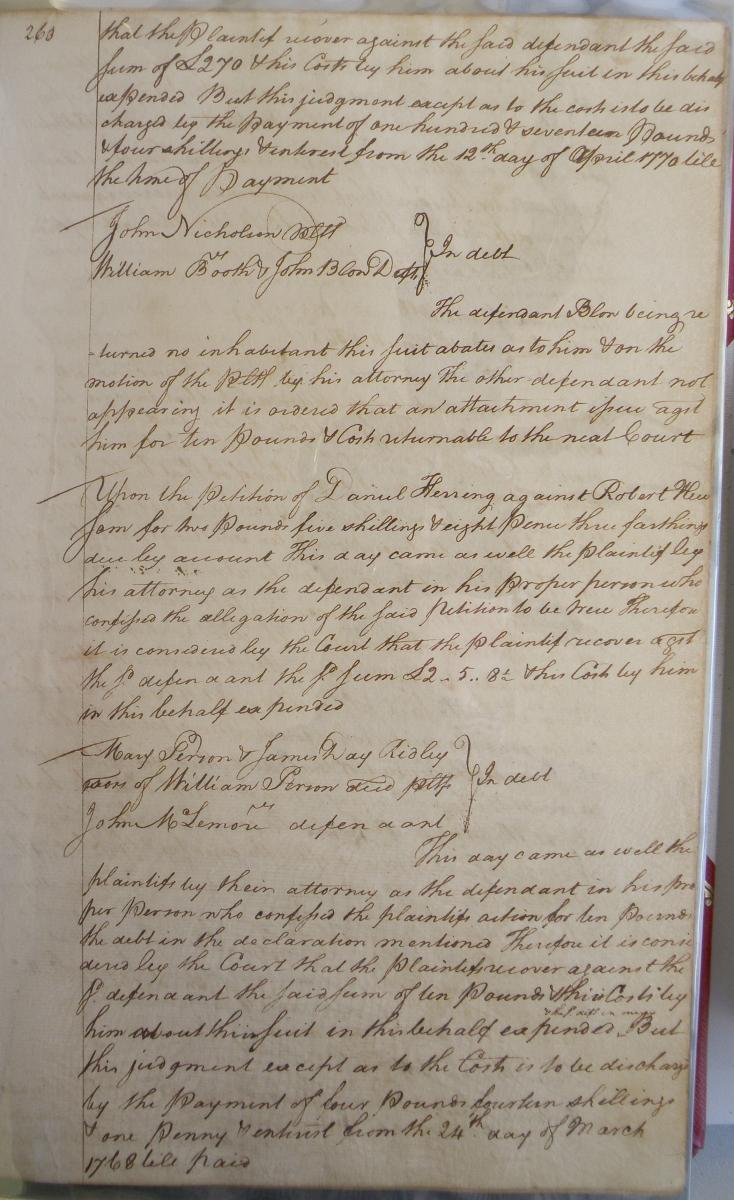 260
that the Plaintif recover against the said defendant the said
sum of £270 & his Costs by him about his suit in this behalf
expended But this judgment except as to the costs is to be dis
charged by the Payment of one hundred & seventeen Pounds
& four shillings & interest from the 12th day of April 1770 till
the time of Payment
John Nicholson Pltf
William Booth & John Blow Defts } In debt
The defendant Blow being re
-turned no inhabitant this suit abates as to him & on the
motion of the Pltf by his attorney The other defendant not
appearing it is ordered that an attachment issue agst
him for ten Pounds & Cost returnable to the next Court
Upon the Petition of Daniel Herring against Robert New
som for two Pounds five shillings & eight Pence three farthings
due by account This day came as well the Plaintif by
his attorney as the defendant in his Proper person who
confessed the allegation of the said Petition to be true Therefore
it is considered by the Court that the Plaintif recover agst
the sd defendant the sd sum £2..5..8¾ & his Costs by him
in this behalf expended
Mary Person & James Day Ridley
exors of William Person decd Pltfs } In debt
John McLemore defendant
This day came as well the
plaintifs by their attorney as the defendant in his pro
per Person who confessed the plaintifs action for ten Pounds
the debt in the declaration mentioned Therefore it is consi
dered by the Court that the Plaintifs recover against the
sd defendant the said sum of ten Pounds & their Costs by
& the sd deft in mercy
him about their suit in this behalf expended But
this judgment except as to the Costs is to be discharg
by the Payment of four Pounds fourteen shillings
& one Penny & interest from the 24th day of March
1768 till paid